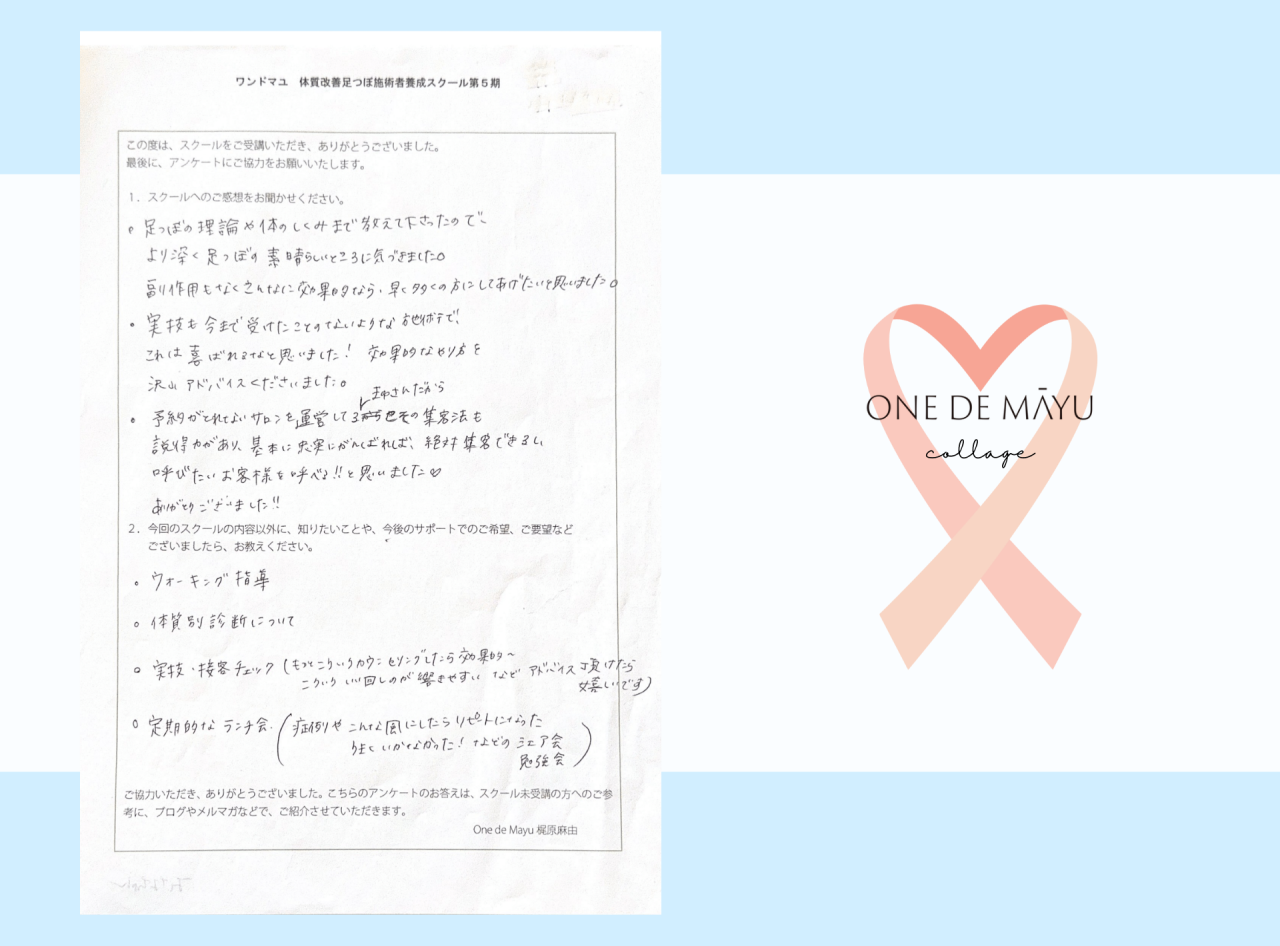 ワンドマユ　体質改善足つぼ施術者養成スクール第５期
この度は、スクールをご受講いただき、ありがとうございました。
最後に、アンケートにご協力をお願いいたします。
１．スクールへのご感想をお聞かせください。
・足つぼの理論や体のしくみまで教えて下さったので、
より深く足つぼの素晴らしいところに気づきました。
副作用もなくこんなに効果的なら、早く多くの方にしてあげたいと思いました。
・実技も今まで受けたことのないような
これは喜ばれるなと思いました！ 効果的なやり方を
沢山アドバイスくださいました。
まゆさんだから
・予約がとれないサロンを運営してるの集客法も
説得力があり、基本に忠実にがんばれば、絶対集客できるし
呼びたいお客様を呼べる!!と思いました♡
ありがとうございました!!
２．今回のスクールの内容以外に、知りたいことや、今後のサポートでのご希望、ご要望など
ございましたら、お教えください。
○ ウォーキング指導
○ 体質別診断について
○ 実技・接客チェック (もっとこういうカウンセリングしたら効果的～
こういういい回しのが響きやすい などアドバイス頂けたら
嬉しいです)
○ 定期的なランチ会. (症例やこんな風にしたらリピートになった
いかなかった! などのシェア会
勉強会)
ご協力いただき、ありがとうございました。こちらのアンケートのお答えは、スクール未受講の方へのご参
考に、ブログやメルマガなどで、ご紹介させていただきます。
One de Mayu 梶原麻由
ONE DE MĀYU
collage